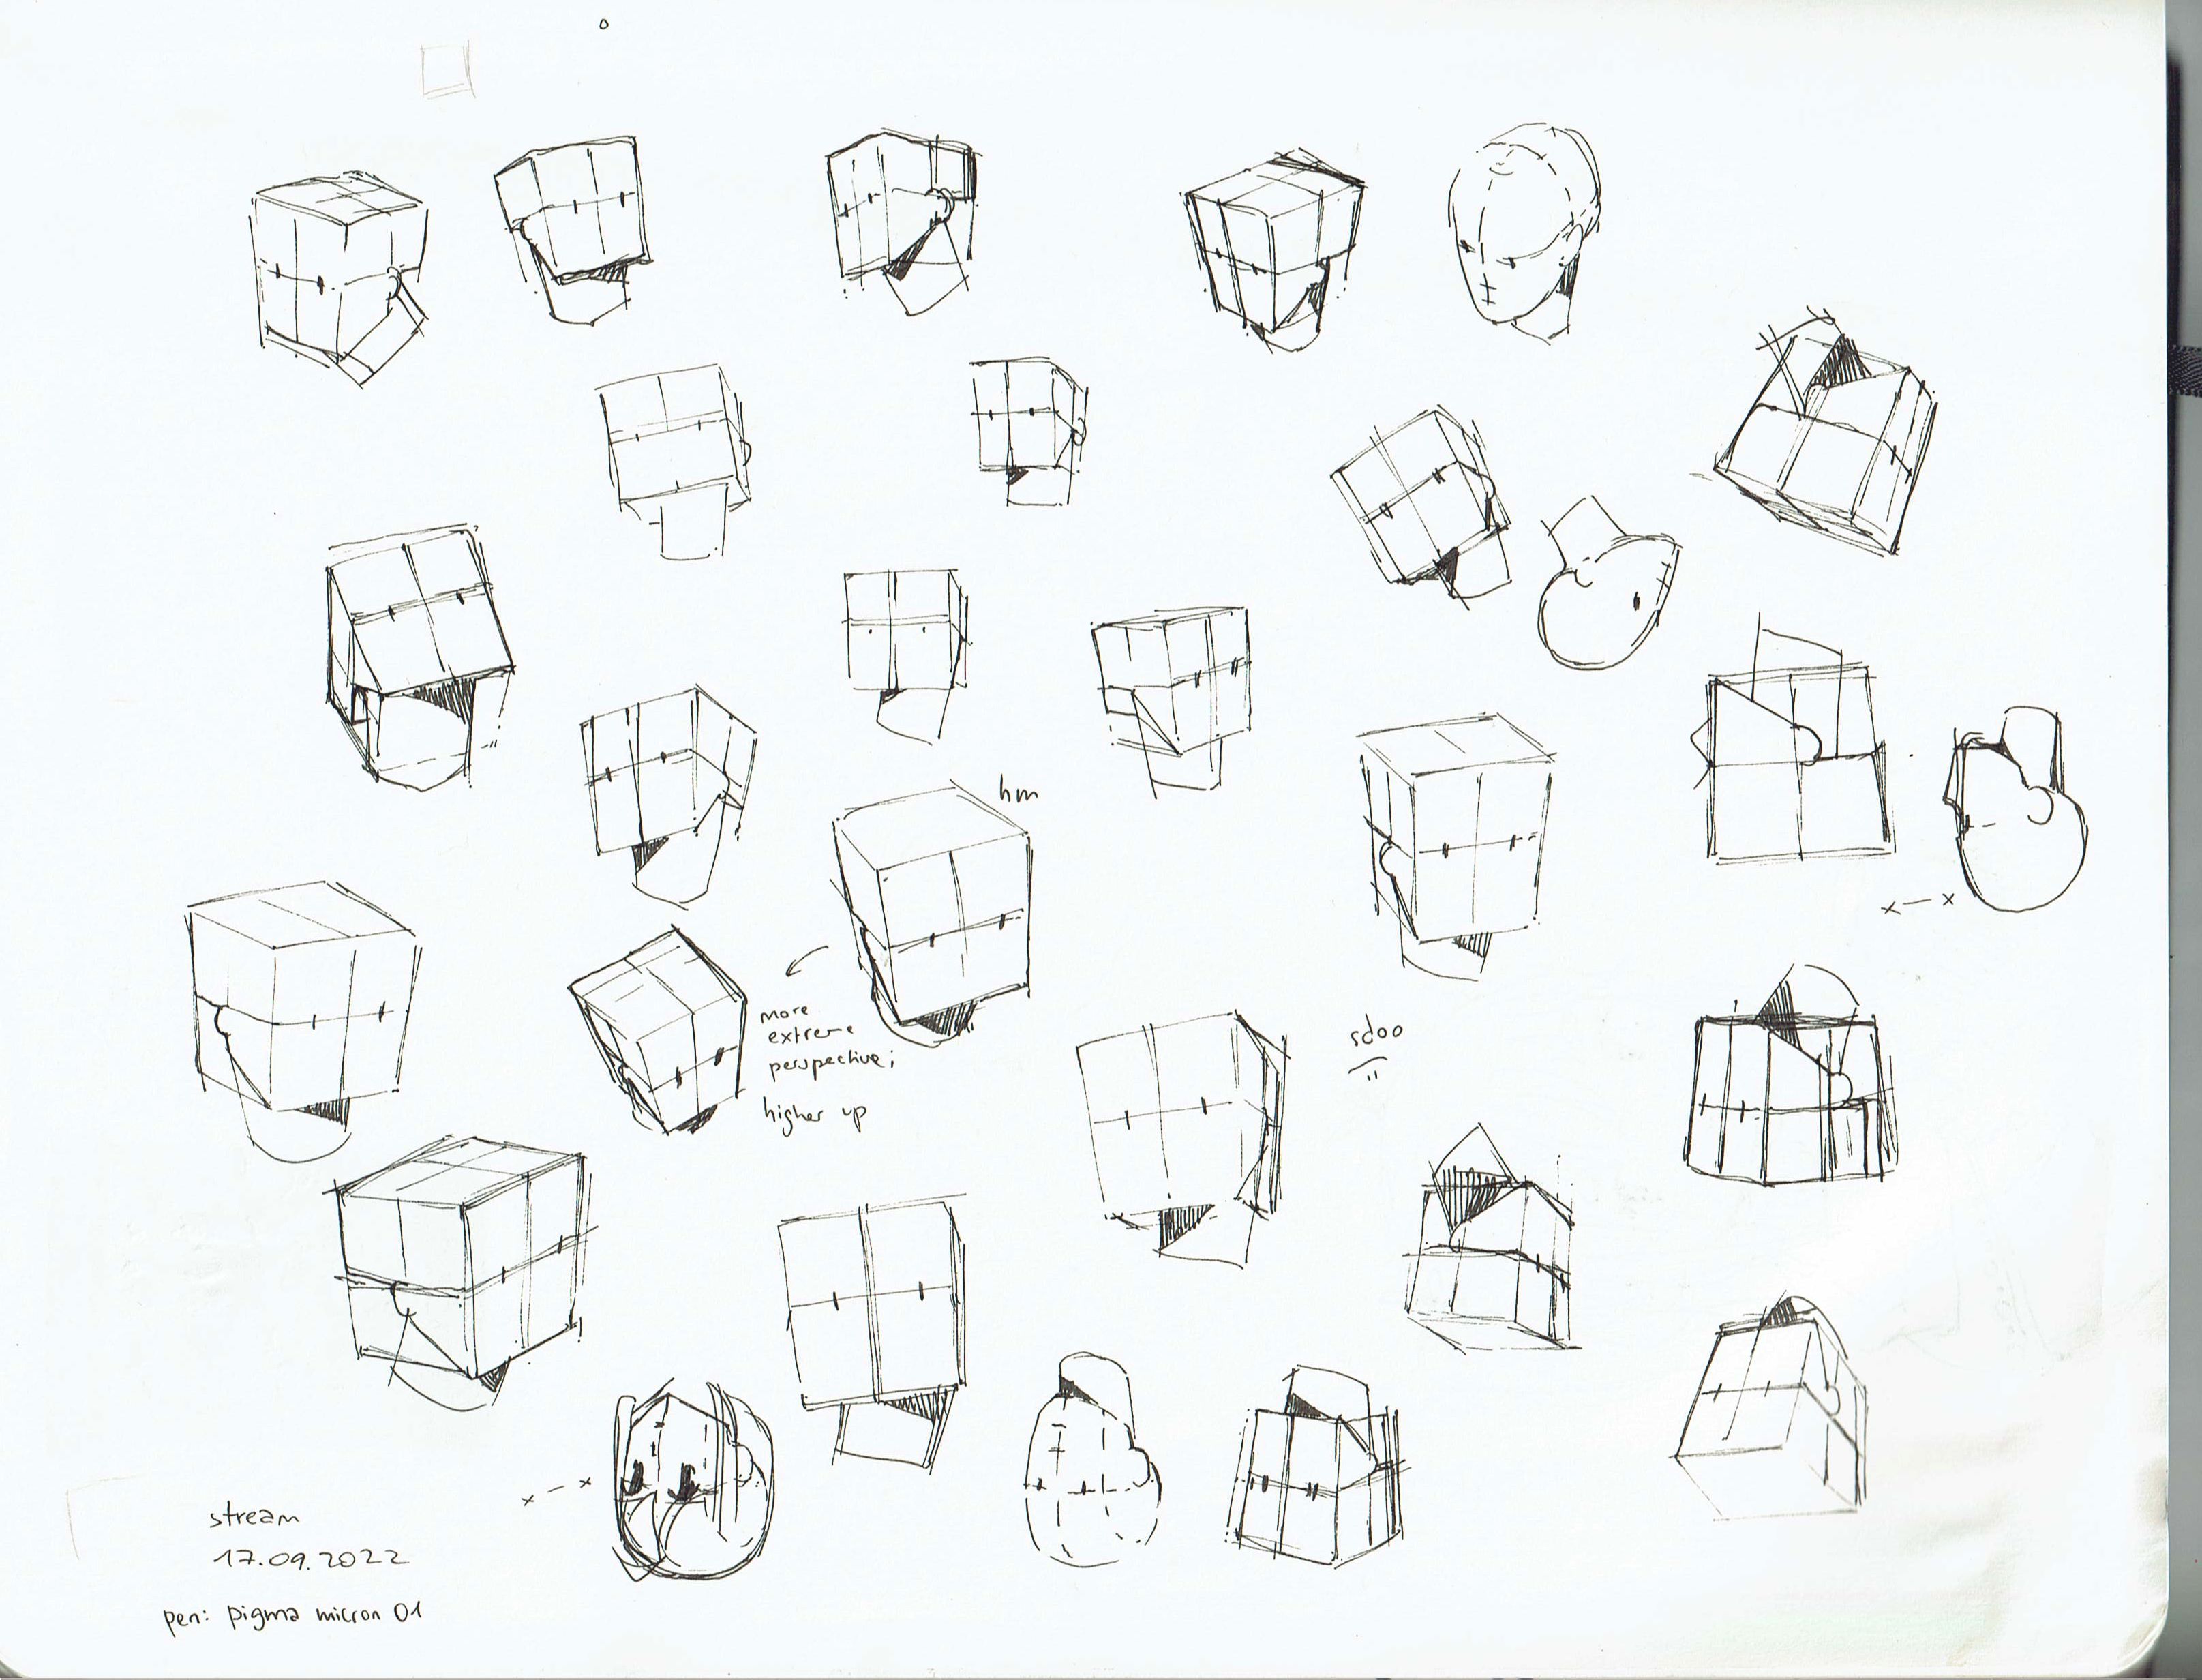 hm
more
extreme
perspective;
higher up
stream
17.09.2022
pen: pigma micron 01